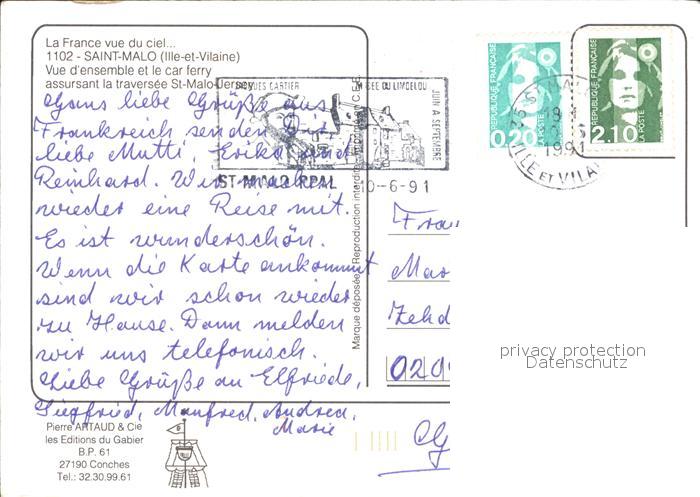 La France vue du ciel...
1102 - SAINT-MALO (Ille-et-Vilaine)
Vue d'ensemble et le car ferry
assurant la traversée St-Malo-Jersey
JACQUES CARTIER
MUSEE DU LIMOELOU
JUIN A SEPTEMBRE
ST-MALO RPAL
10-6-91
REPUBLIQUE FRANÇAISE
0,20 LA POSTE
REPUBLIQUE FRANÇAISE
2,10 LA POSTE
1991
ILLE ET VILAINE
Ganz liebe Grüße aus
Frankreich senden Dir
liebe Mutti, Erika und
Reinhard. Wir machen
wieder eine Reise mit.
Es ist wunderschön.
Wenn die Karte ankommt
sind wir schon wieder
zu Hause. Dann melden
wir uns telefonisch.
Liebe Grüße an Elfriede,
Siegfried, Manfred, Andrea,
Marie
Marque déposée. Reproduction interdite
Frau
Mar
Zehd
029
privacy protection
Datenschutz
Pierre ARTAUD & Cie
les Editions du Gabier
B.P. 61
27190 Conches
Tel.: 32.30.99.61